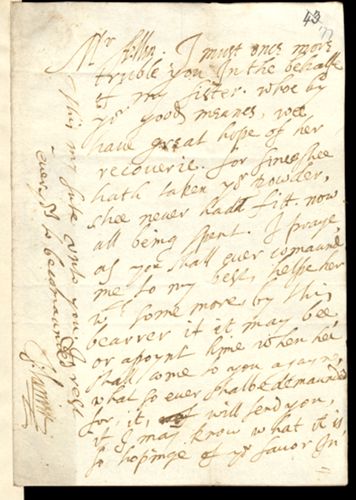 43
Mr I must once more
trouble you In the behalfe
of my sister. whoe by
yr good meanes, wee
have great hope of her
recoverie. for since shee
hath taken ye powder,
shee never hadd fitt now
all being spent. I praye,
as you shall ever comaunde
me to my best, helpe her
wt some more by this
bearrer if it may bee,
or apoynt hime when hee
shall come to you agayne,
what so ever shalbe demaunded
for, it, I will send you,
if I may know what it is
so hopinge of yr favor In
This my sute unto you I rest
ever yrs to be comaunded